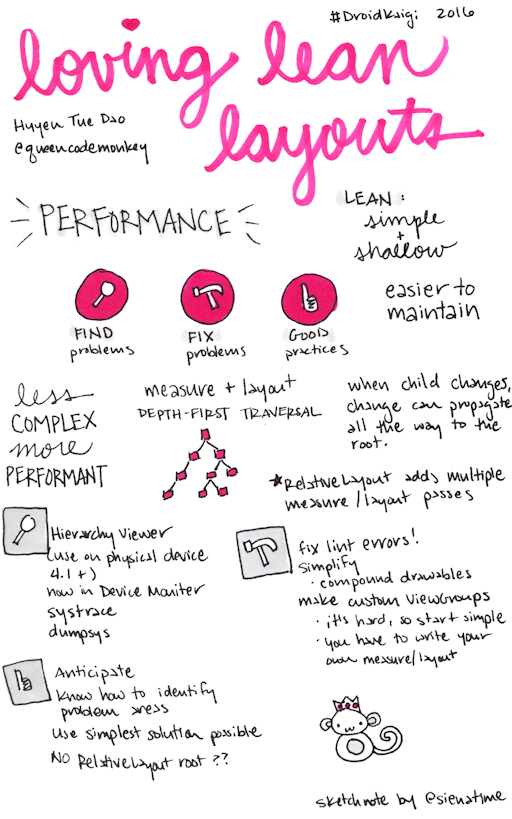 #DroidKaigi 2016
loving lean
layouts
Huyen Tue Dao
@queencodemonkey
PERFORMANCE
LEAN:
simple
+
shallow
easier to
maintain
FIND
problems
FIX
problems
GOOD
practices
less
COMPLEX
more
PERFORMANT
measure + layout
DEPTH-FIRST TRAVERSAL
when child changes,
change can propagate
all the way to the
root.
★RelativeLayout adds multiple
measure/layout passes
Hierarchy Viewer
(use on physical device
4.1+)
now in Device Moniter
systrace
dumpsys
fix lint errors!
Simplify
· compound drawables
make custom ViewGroups
· it's hard, so start simple
· you have to write your
own measure/layout
Anticipate
Know how to identify
problem areas
Use simplest solution possible
NO RelativeLayout root ??
sketchnote by @sienatime